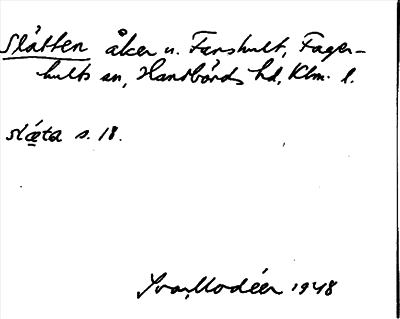 Slåtten åker u. Farshult, Fager-
hults sn, Handbörds hd, Klm. l.
slæta s. 18.
Ivar Modéer 1948